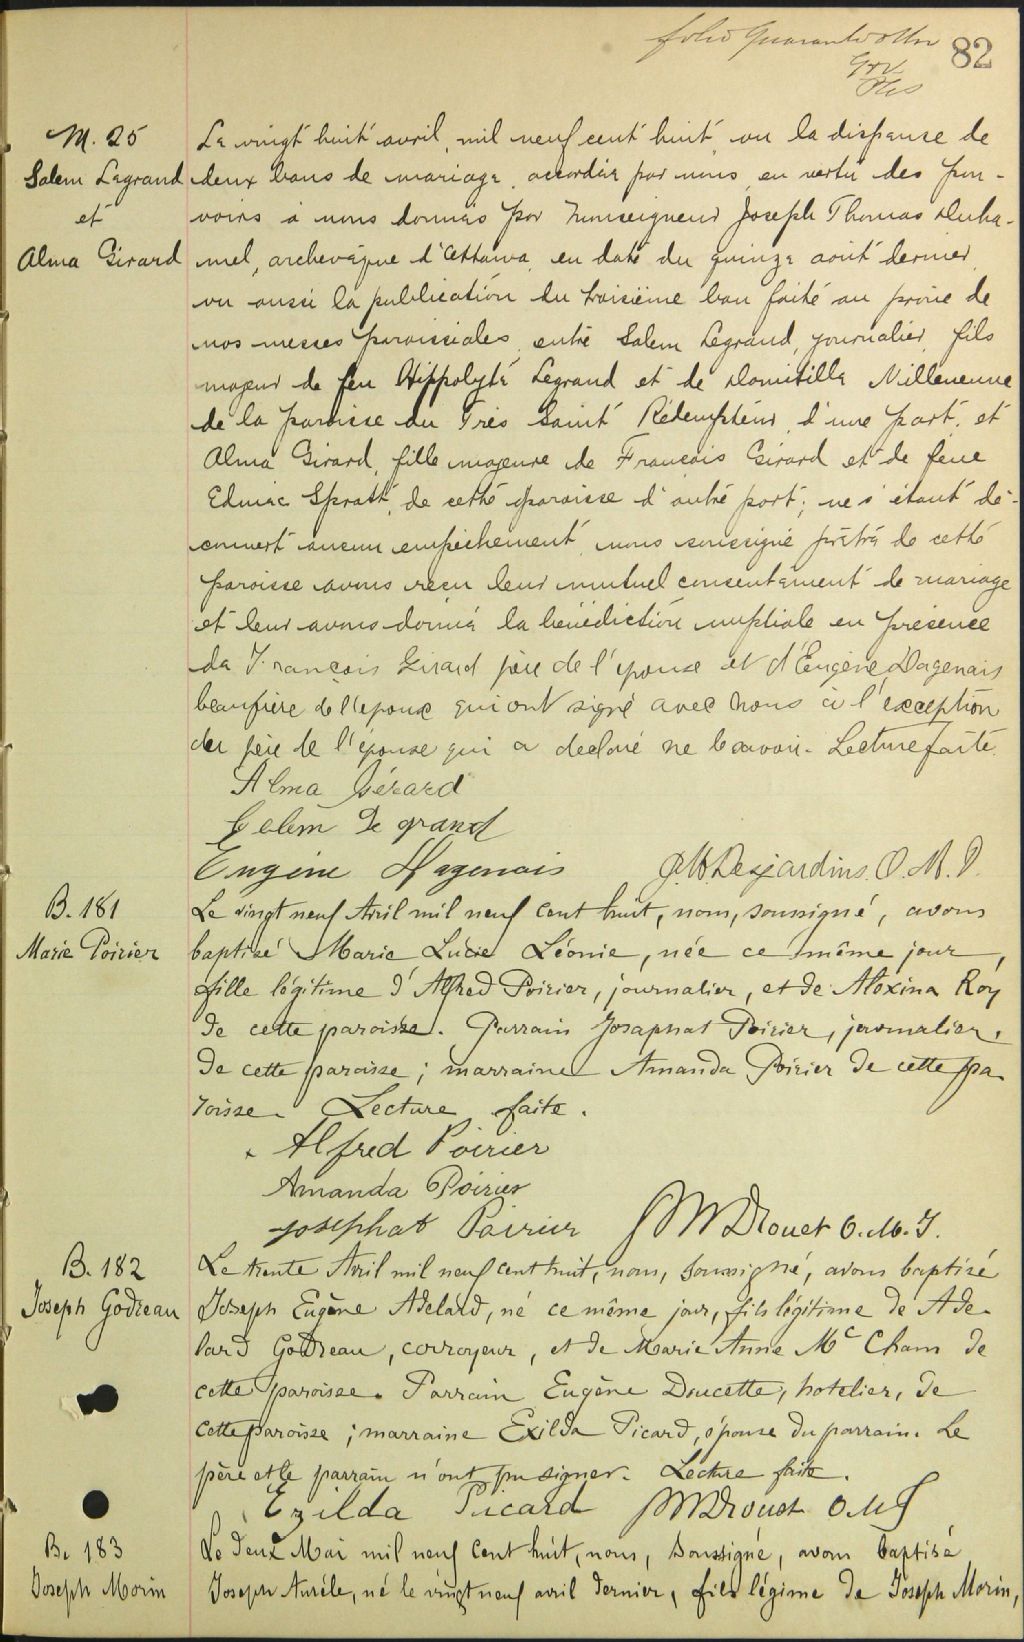 folio Quarante
82
M. 25
Salem Legrand
et
Alma Girard
Le vingt huit avril, mil neuf cent huit, vu la dispense de
deux bans de mariage, accordée par nous, en vertu des pou-
voirs à nous donnés par Monseigneur Joseph Thomas Duha-
mel, archevêque d'Ottawa, en date du quinze août dernier,
vu aussi la publication du troisième ban faite au prône de
nos messes paroissiales, entre Salem Legrand, journalier, fils
majeur de feu Hippolyte Legrand et de Domitille Villeneuve
de la paroisse du Très Saint Rédempteur, d'une part, et
Alma Girard, fille majeure de François Girard et de feue
Edmire Spratt, de cette paroisse d'autre part; ne s'étant dé-
couvert aucun empêchement, nous soussigné prêtre de cette
paroisse avons reçu leur mutuel consentement de mariage
et leur avons donné la bénédiction nuptiale en présence
de François Girard père de l'épouse et d'Eugène Dagenais
beaufrère de l'époux qui ont signé avec nous à l'exception
du père de l'épouse qui a declaré ne le savoir. Lecture faite.
Alma Gérard
Celem Le grand
Eugène Dagenais
Desjardins, O. M. I.
B. 181
Marie Poirier
Le vingt neuf Avril mil neuf cent huit, nous, soussigné, avons
baptisé Marie Lucie Léonie, née ce même jour,
fille légitime d'Alfred Poirier, journalier, et de Aloxina Roy
de cette paroisse. Parrain Josaphat Poirier, journalier,
de cette paroisse; marraine Amanda Poirier de cette pa-
roisse. Lecture faite.
Alfred Poirier
Amanda Poirier
Josephat Poirier
Drouet O.M.I.
B. 182
Joseph Godreau
Le trente Avril mil neuf cent huit, nous, soussigné, avons baptisé
Joseph Eugène Adelard, né ce même jour, fils légitime de Ade-
lard Godreau, corroyeur, et de Marie Anne Mc Cham de
cette paroisse. Parrain Eugène Doucette, hotelier, de
cette paroisse; marraine Exilda Picard, épouse du parrain. Le
père et le parrain n'ont pu signer. Lecture faite.
Ezilda Picard
Drouet O.M.I
B. 183
Joseph Morin
Le deux Mai mil neuf cent huit, nous, soussigné, avons baptisé
Joseph Aurèle, né le vingt neuf avril dernier, fils légime de Joseph Morin,